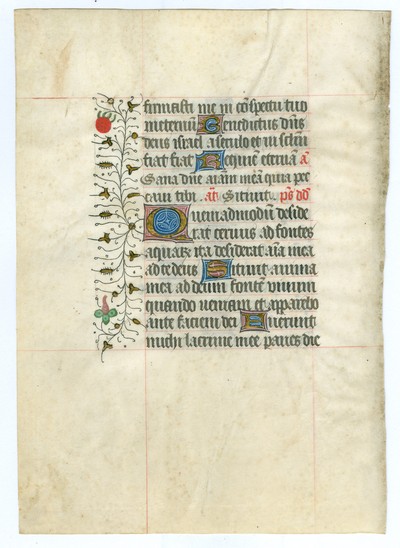 firmasti me in cōspectu tuo
ineternū Benedictus dn̄s
deus israel a seculo et in sclm̄
fiat fiat Requiem eternā a͞
Sana dne aīam meā quia pec
caui tibi. an̄ Sitiuit. ps̄ dd
Quemadmodū deside
rat ceruus ad fontes
aquar̄ ita desiderat aīa mea
ad te deus Sitiuit anima
mea ad deum fontē viuum
quando ueniam et apparebo
ante faciem dei Fuerunt
michi lacrime mee panes die